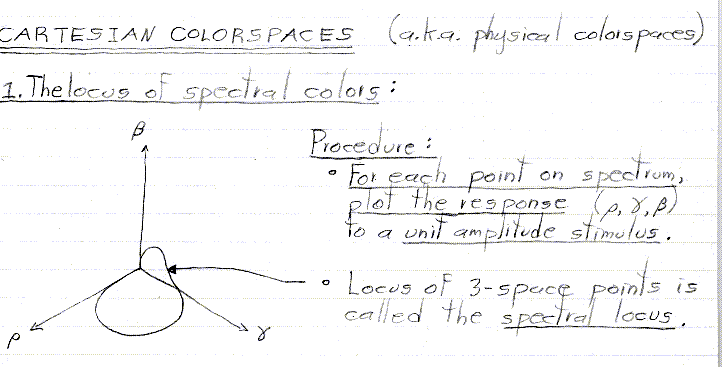 CARTESIAN COLORSPACES (a.k.a. physical colorspaces)
1. The locus of spectral colors:
β
Procedure:
• For each point on spectrum,
plot the response (ρ, γ, β)
to a unit amplitude stimulus.
• Locus of 3-space points is
called the spectral locus.
ρ
γ